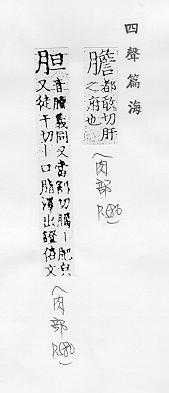 四聲篇海
膽
都敢切肝
之府也
(肉部
胆
音膻義同又當割切丨肥皃
又徒干切丨口脂澤出證俗文
(肉部